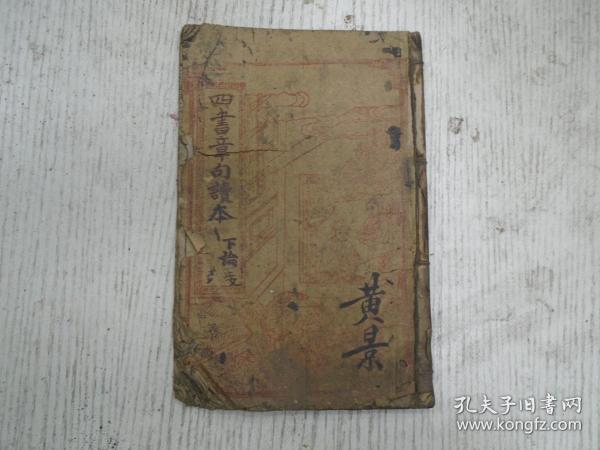 四書章句讀本
下論
黃景
孔夫子旧书网
www.kongfz.com